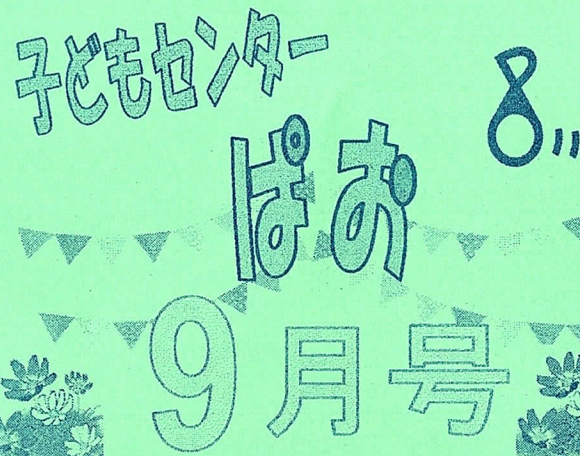 子どもセンター
ぱお
9月号